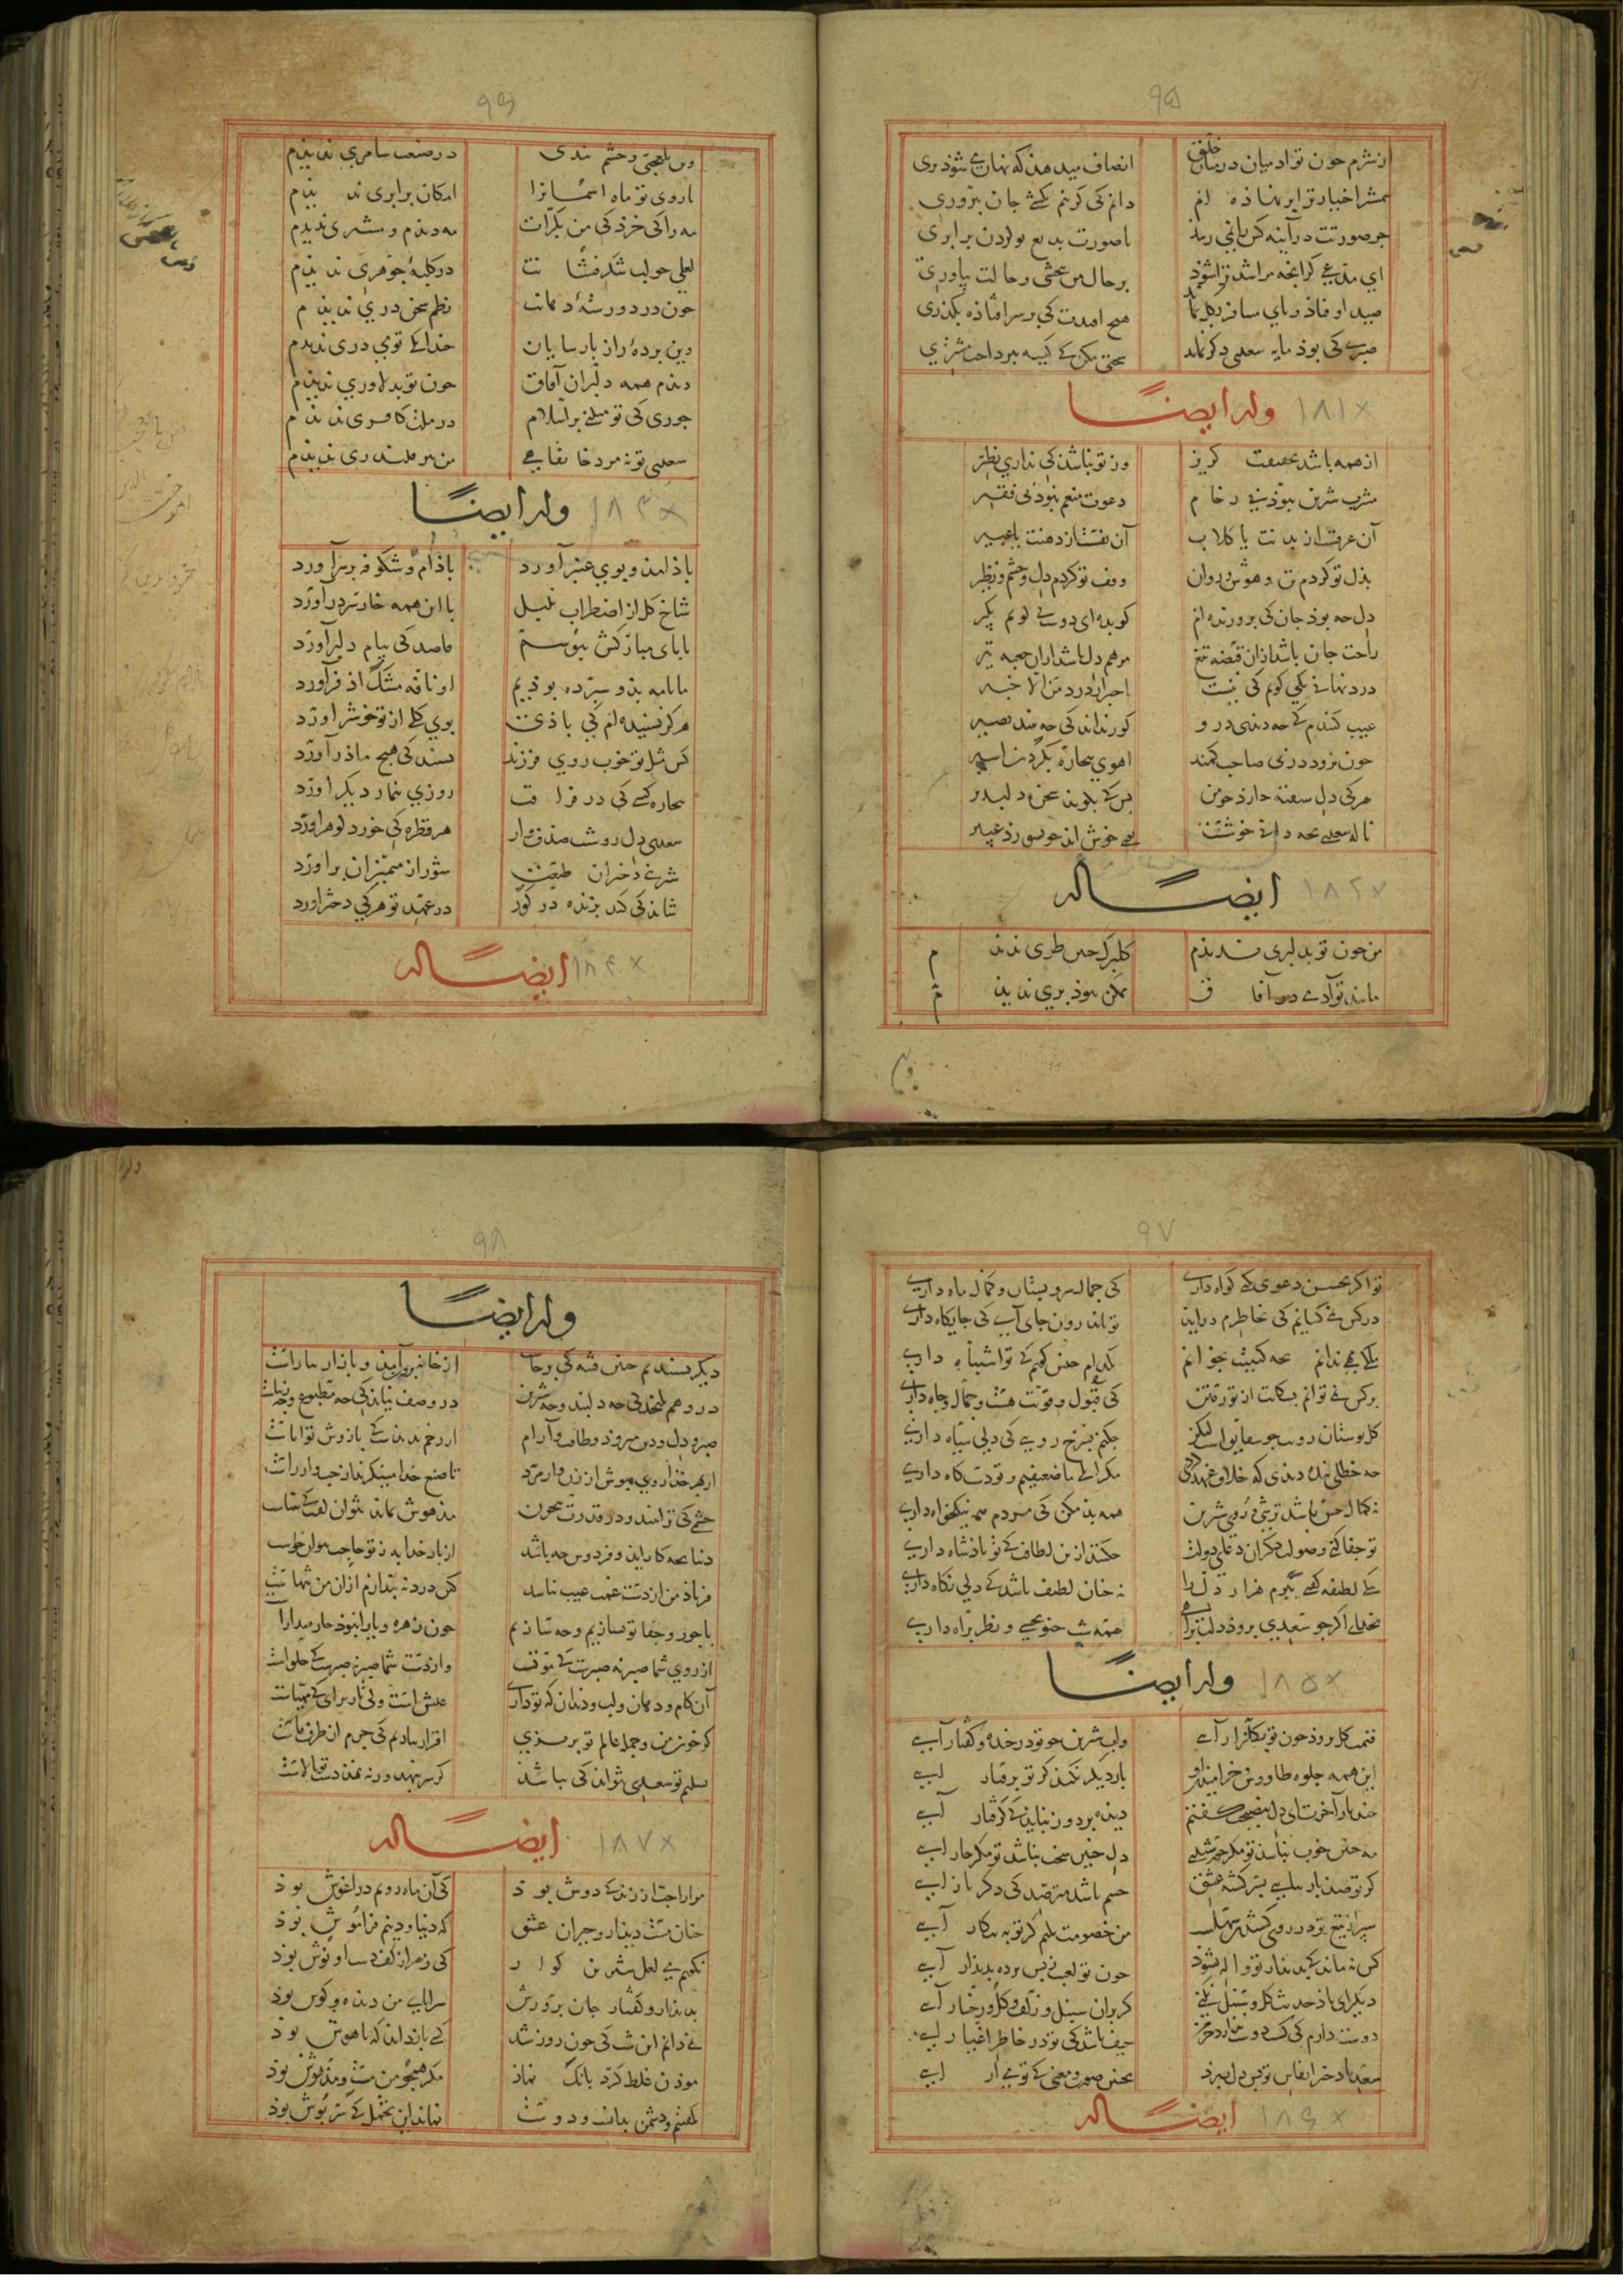 ۹۵
از شرم چون تو آدمیان در میان خلق انصاف میدهد که نهان می شود پری
شمشیر اختیار ترا سر نهاده ام دانم کی گر تنم بکشی جان بپروری
جز صورتت در آینه کس را نمی رسد با صورت بدیع تو کردن برابری
ای مدعی گر آنچه مرا شد ترا شود بر حال من ببخشی و حالت بیاوری
صید اوفتاذ و پای مسافر بگل بماند هیچ افتدت کی بر سر افتاذه بگذری
صبری کی بوذ مایه سعدی دگر نماند سختی مکن کی کیسه بپرداخت مشتری
۱۸۱ ×
وله ایضاً
از همه باشد بحقیقت گریز وز تو نباشد کی نداری نظیر
مشرب شیرین نبوذ بی زحام دعوت منعم نبوذ بی فقیر
آن عرقست از بدنت یا گلاب آن نفسست از دهنت یا عبیر
بذل تو کردم تن و هوش و روان وقف تو کردم دل و چشم و نظر
دل چه بوذ جان کی بدو زنده ام گو بده ای دوست کی گویم بگیر
راحت جان باشد از آن قبضه تیغ مرهم دل باشد از آن جعبه تیر
درد نهانی بکی گویم کی نیست باخبر از درد من الا خبیر
عیب کنندم کی چه دیدی درو کور نداند کی چه بیند بصیر
چون نرود در پی صاحب کمند آهوی بیچاره بگردن اسیر
هر کی دل سفته دارذ چو من بس کی بگوید سخن دلپذیر
ناله سعدی بچه دانی خوشست بوی خوش آید چو بسوزذ عبیر
۱۸۲ ×
ایضاً له
من چون تو بدلبری ندیدم گلبرگ چنین طری ندیدم
مانند تو آدمی در آفاق ممکن نبوذ پری ندیدم
۹۶
وین بلعجبی و چشم بندی در صنعت سامری ندیدم
با روی تو ماه آسمانرا امکان برابری ندیدم
مه را کی خرد کی من بکرات مه دیدم و مشتری ندیدم
لعلی چو لب شکرفشانت در کلبه جوهری ندیدم
چون در دو رسته دهانت نظم سخن دری ندیدم
وین پرده راز پارسایان چندانک تو می دری ندیدم
دیدم همه دلبران آفاق چون تو بدلاوری ندیدم
جوری کی تو میکنی بر اسلام در ملت کافری ندیدم
سعدی تو نه مرد خانقاهی من هم قلندری ندیدم
۱۸۳ ×
وله ایضاً
باذ آمد و بوی عنبر آورد باذام و شکوفه بر سر آورد
شاخ گل از اضطراب بلبل با این همه خار سر در آورد
تا پای مبارکش ببوسم قاصد کی پیام دلبر آورد
ما نامه بذو سپرده بوذیم او نافه مشک اذفر آورد
هرگز نشنیده ام کی باذی بوی گلی از تو خوشتر آورد
کس مثل تو خوب روی فرزند نشنید کی هیچ ماذر آورد
بیچاره کسی کی در فراقت روزی بنماز دیگر آورد
سعدی دل روشنت صدف وار هر قطره کی خورد گوهر آورد
شیرینی دختران طبعت شور از متمیزان بر آورد
شاید کی کند بزنده در گور در عهد تو هر کی دختر آورد
۱۸۴ ×
ایضاً له
۹۷
تو اگر بحسن دعوی بکنی گواه داری کی جمال سرو بستان و کمال ماه داری
در کس نمی گشایم کی بخاطرم در آید تو باندرون جای آی کی جایگاه داری
ملکی مهی ندانم بچه کنیتت بخوانم بکدام جنس گویم کی تو اشتباه داری
بر کس نمی توانم بشکایت از تو رفتن کی قبول و قوتت هست و جمال و جاه داری
گل بوستان رویت چو شقایق است لیکن چکنم بسرخ رویی کی دلی سیاه داری
چه خطای بنده دیدی که خلاف عهد کردی مگر آنک ما ضعیفیم و تو دستگاه داری
نه کمال حسن باشد ترشی و روی شیرین همه بد مکن کی مردم همه نیکخواه داری
تو جفا کنی و صولت دگران دعای دولت چکنند ازین لطافت کی تو پاذشاه داری
بیکی لطیفه گفتی ببرم هزار دل را نه چنان لطیف باشد کی دلی نگاه داری
بخدای اگر چو سعدی برود دلت براهی همه شب چنو نخسبی و نظر براه داری
۱۸۵ ×
وله ایضاً
قیمت گل بروذ چون تو بگلزار آیی و آب شیرین چو تو در خنده و گفتار آیی
این همه جلوه طاوس و خرامیدن او بار دیگر نکند گر تو برفتار آیی
چند بار آخرت ای دل بنصیحت گفتم دیده بردوز نباید کی گرفتار آیی
مه چنین خوب نباشد تو مگر خورشیدی دل چنین سخت نباشد تو مگر خارایی
گر تو صد بار بیایی بسر کشته عشق چشم باشد مترصد کی دگر باز آیی
سپر از تیغ تو در روی کشیدن نهیست من خصومت نکنم گر تو به پیکار آیی
کس نماند کی بدیدار تو واله نشود چون تو لعبت ز پس پرده پدیدار آیی
دیگر ای باذ حدیث گل و سنبل نکنی گر بران سنبل زلف و گل رخسار آیی
دوست دارم کی کست دوست ندارد جز من حیف باشد کی تو در خاطر اغیار آیی
سعدیا دختر انفاس تو بس دل ببرذ بچنین صورت و معنی کی تو می آرایی
۱۸۶ ×
ایضاً له
۹۸
وله ایضاً
دیگر نشنیدیم چنین فتنه کی برخاست از خانه برون آمد و بازار بیاراست
در وهم نگنجد کی چه دلبند و چه شیرین در وصف نیاید کی چه مطبوع و چه زیباست
صبر و دل و دین میروذ و طاقت و آرام از زخم پدیدست کی بازوش تواناست
از بهر خدا روی مپوش از زن و از مرد تا صنع خدا مینگرند از چپ و از راست
چشمی کی ترا بیند و در قدرت بیچون مدهوش نماند نتوان گفت کی بیناست
دنیا بچه کار آید و فردوس چه باشد از بارخدا به ز تو حاجت نتوان خواست
فریاذ من از دست غمت عیب نباشد کین درد نپندارم از آن من تنهاست
با جور و جفای تو نسازیم و چه سازیم چون زهره و یارا نبوذ چاره مداراست
از روی شما صبر نه صبرست کی موتست وز دست شما زهر نه زهرست کی حلواست
آن کام و دهان و لب و دندان که تو داری عیش است ولی تا ز برای کی مهیاست
گر خون من و جمله عالم تو بریزی اقرار بیاریم کی جرم از طرف ماست
تسلیم تو سعدی نتواند کی نباشد گر سر بنهد ورنه بنهد دست تو بالاست
۱۸۷ ×
ایضاً له
مرا راحت از زندگی دوش بوذ کی آن ماه رویم در آغوش بوذ
چنان مست دیدار و حیران عشق که دنیا و دینم فراموش بوذ
نگویم می لعل شیرین گوار کی زهر از کف دست او نوش بوذ
بدیدار و گفتار جان پرورش سراپای من دیده و گوش بوذ
نمی دانم این شب کی چون روز شد کسی باز داند که باهوش بوذ
موذن غلط کرد بانگ نماز مگر همچو من مست و مدهوش بوذ
بگفتیم و دشمن بدانست و دوست نماند این تحمل کی سرپوش بوذ